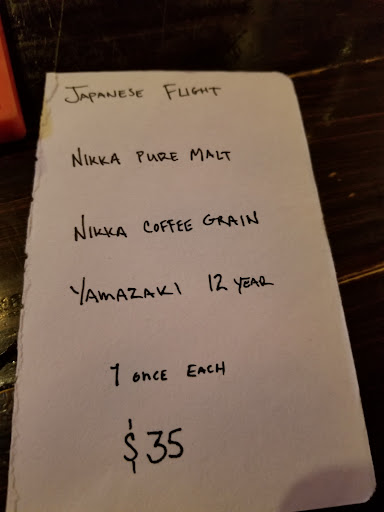 JAPANESE FLIGHT
NIKKA PURE MALT
NIKKA COFFEE GRAIN
YAMAZAKI 12 YEAR
1 ONCE EACH
$35